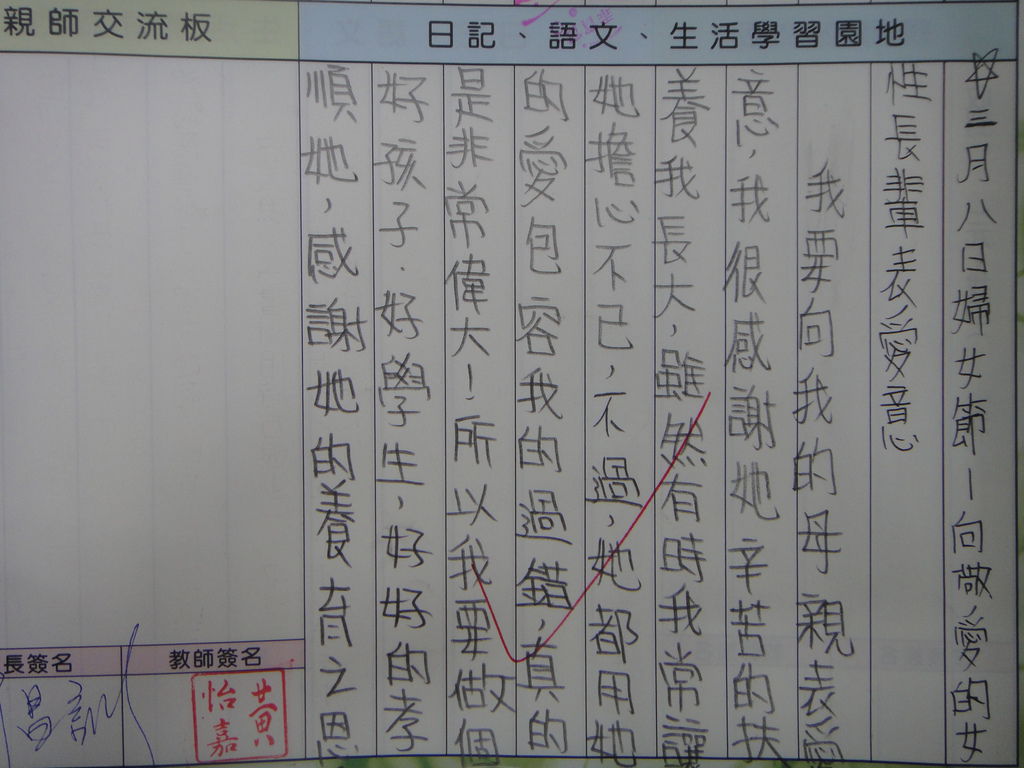 親師交流板
日記、語文、生活學習園地
☆三月八日婦女節—向敬愛的女
性長輩表愛意
我要向我的母親表愛
意，我很感謝她辛苦的扶
養我長大，雖然有時我常讓
她擔心不已，不過，她都用她
的愛包容我的過錯，真的
是非常偉大！所以我要做個
好孩子．好學生，好好的孝
順她，感謝她的養育之恩
長簽名
教師簽名
黃怡嘉